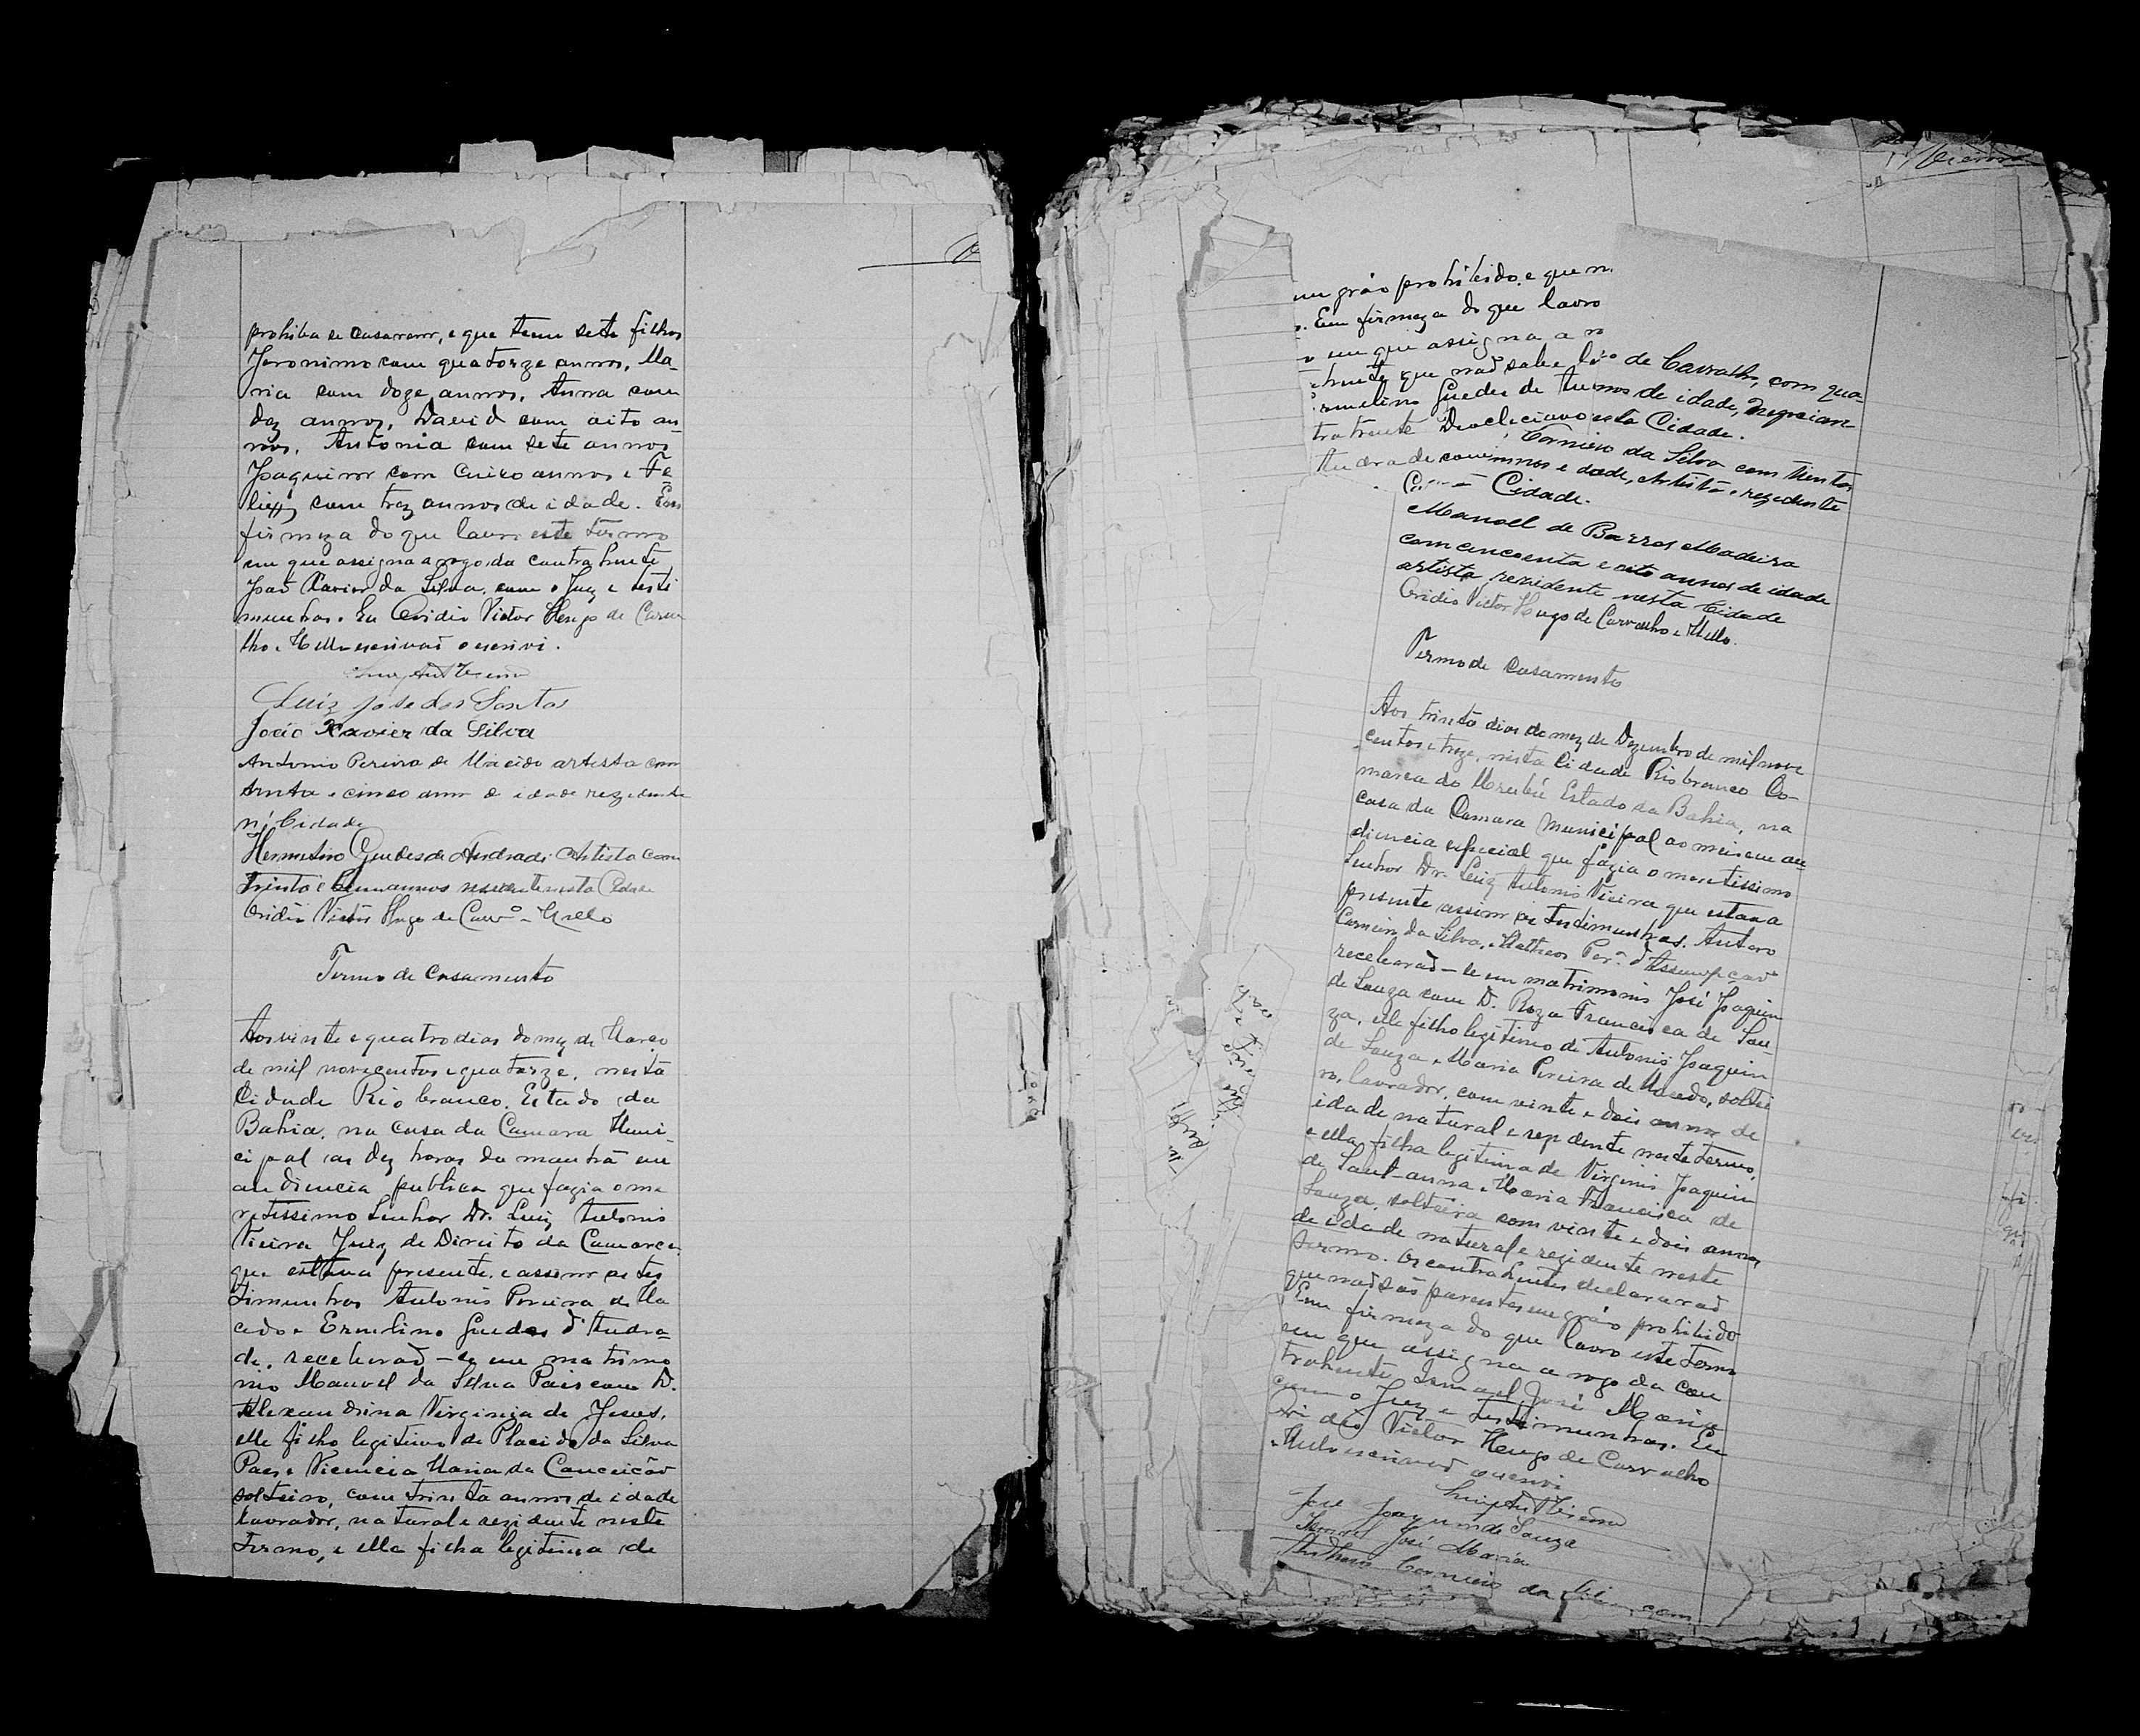 prohiba se casarem, e que tem sete filhos
Jeronimo com quatorze annos, Ma-
ria com doze annos, Anna com
dez annos, David com oito an-
nos, Antonia com sete annos
Joaquim com cinco annos e Fe
lippe com trez annos de idade. Em
firmeza do que lavro este termo
em que assigna a rogo da contrahente
João Xavier da Silva, com o Juiz e testi
munhas. Eu Ovidio Victor Hugo de Carva
lho e Mello escrivaõ o escrivi.
Luiz Ant Vieira
Luiz José dos Santos
João Xavier da Silva
Antonio Pereira de Macêdo artista com
trinta e cinco anno de idade rezidente
n/ Cidade
Hermelino Guedes de Andrade Artista com
trinta e hum annos residente nesta Cidade
Ovidio Victor Hugo de Carvº e Mello
Termo de Casamento
Aos vinte e quatro dias do mez de Março
de mil novecentos e quatorze, nesta
Cidade Rio branco, Estado da
Bahia, na casa da Camara Muni-
cipal as dez horas da manhã em
audiencia publica que fazia o me
retissimo Senhor Dr. Luiz Antonio
Vieira Juiz de Direito da Comarca
que estava presente, e assim as tes
timunhas Antonio Pereira de Ma
cedo e Ermelino Guedes d'Andra-
de, receberaõ-se em matrimo
nio Manoel da Silva Pais com D.
Alexandrina Virginia de Jesus,
elle filho legitimo de Placido da Silva
Paes e Vicencia Maria da Conceicão
solteiro, com trinta annos de idade
lavrador, natural e rezidente neste
Termo, e ella filha legitima de
Vieira
em gráo prohibido, e que n
. Em firmeza do que lavro
em que assigna a r
que naõ sabe de Carvalho, com qua-
Guedes de annos de idade, negocian-
Deocleciano esta Cidade.
Carneiro da Silva com trenta
annos e dade, Artista e rezidente
Cidade.
Manoel de Barros Madeira
com cincoenta e oito annos de idade
artista, residente nesta Cidade
Ovidio Victor Hugo de Carvalho e Mello.
Termo de Casamento
Aos trinta dias do mez de Dezembro de mil nove
centos e treze, nesta Cidade Rio branco Co-
marca do Urubú Estado da Bahia, na
casa da Camara Municipal ao meio em au
diencia especial que fazia o meretissimo
Senhor Dr. Luiz Antonio Vieira que estava
presente assim as testimunhas. Antero
Carneiro da Silva, e Matheos Perª d'Assumpçaõ
receberaõ-se em matrimonio José Joaquim
de Souza com D. Roza Francisca de Sou-
za, elle filho legitimo de Antonio Joaquim
de Souza e Maria Pereira de Macedo, soltei
ro, lavrador, com vinte e dois annos de
idade natural e rezidente neste termo,
e ella filha legitima de Virginio Joaquim
de Sant-anna e Maria Francisca de
Souza, solteira com vinte e dois annos
de idade natural e rezidente neste
termo. Os contrahentes declararaõ
que naõ são parentes em gráo prohibido
Em firmeza do que lavro este termo
em que assigna a rogo da con
trahente Ismael José Maria
com o Juiz e testimunhas. Eu
Ovidio Victor Hugo de Carvalho
e Mello escrivaõ o escrevi
Luiz Ant Vieira
José Joaquim de Souza
Ismael José Maria
Anthero Carneiro da Silva com